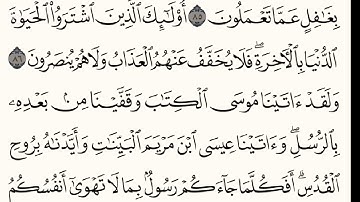 بِغَٰفِلٍ عَمَّا تَعۡمَلُونَ ٨٥ أُوْلَٰٓئِكَ ٱلَّذِينَ ٱشۡتَرَوُاْ ٱلۡحَيَوٰةَ
ٱلدُّنۡيَا بِٱلۡأٓخِرَةِۖ فَلَا يُخَفَّفُ عَنۡهُمُ ٱلۡعَذَابُ وَلَا هُمۡ يُنصَرُونَ ٨٦
وَلَقَدۡ ءَاتَيۡنَا مُوسَى ٱلۡكِتَٰبَ وَقَفَّيۡنَا مِنۢ بَعۡدِهِۦ
بِٱلرُّسُلِۖ وَءَاتَيۡنَا عِيسَى ٱبۡنَ مَرۡيَمَ ٱلۡبَيِّنَٰتِ وَأَيَّدۡنَٰهُ بِرُوحِ
ٱلۡقُدُسِۗ أَفَكُلَّمَا جَآءَكُمۡ رَسُولُۢ بِمَا لَا تَهۡوَىٰٓ أَنفُسُكُمُ